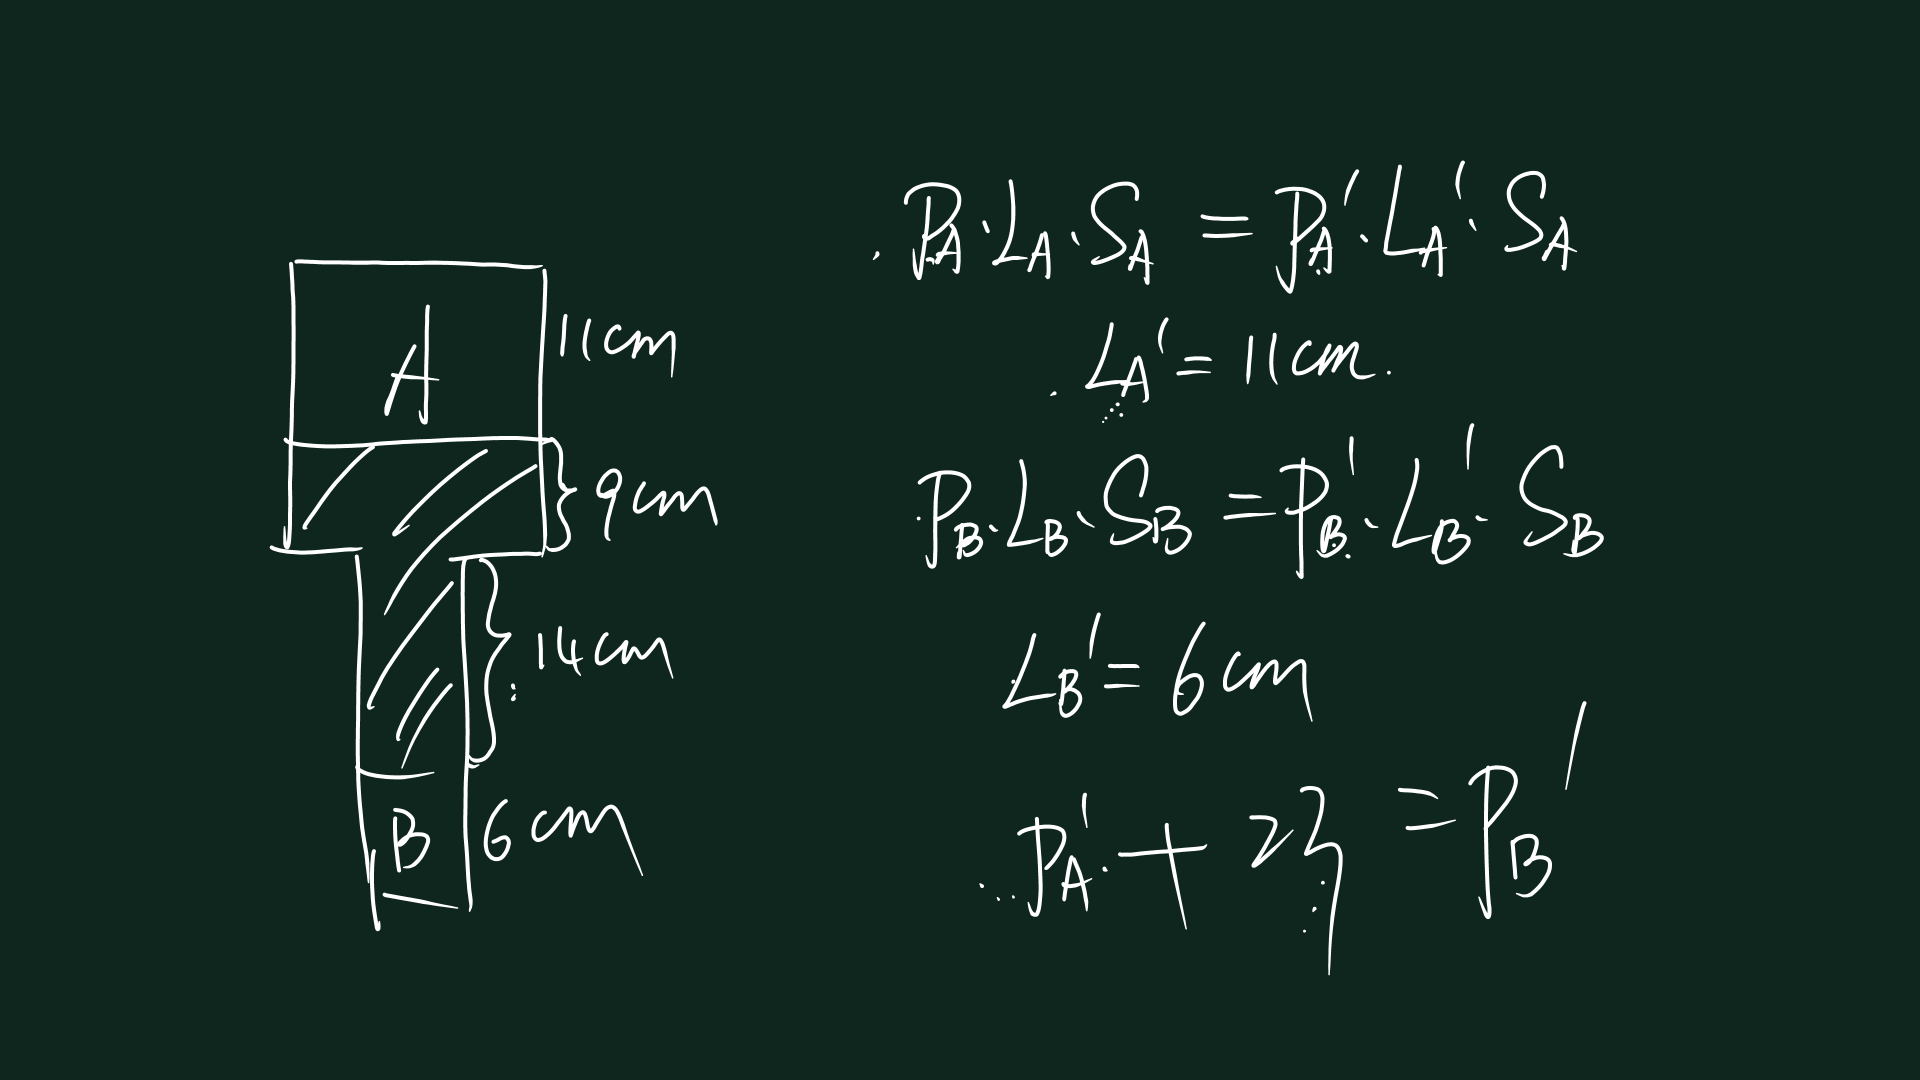 A
11cm
9cm
14cm
B
6cm
P_A · L_A · S_A = P_A' · L_A' · S_A
L_A' = 11cm.
P_B · L_B · S_B = P_B' · L_B' · S_B
L_B' = 6cm
P_A' + 23 = P_B'